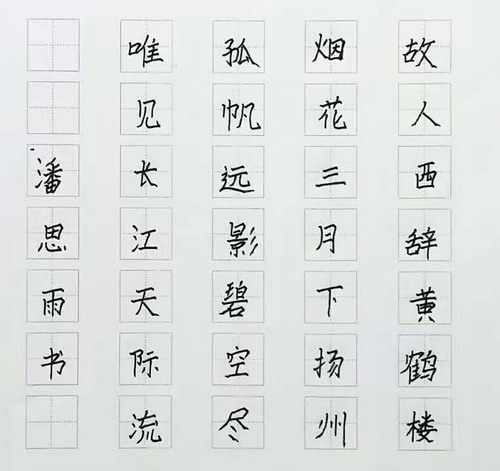 故人西辞黄鹤楼
烟花三月下扬州
孤帆远影碧空尽
唯见长江天际流
潘思雨书